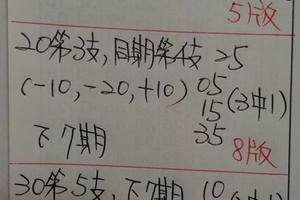 5版
20第3支,同期第4支 25
(-10,-20,+10) 05
15(3中1)
下7期 35
8版
30第5支,下7期 10